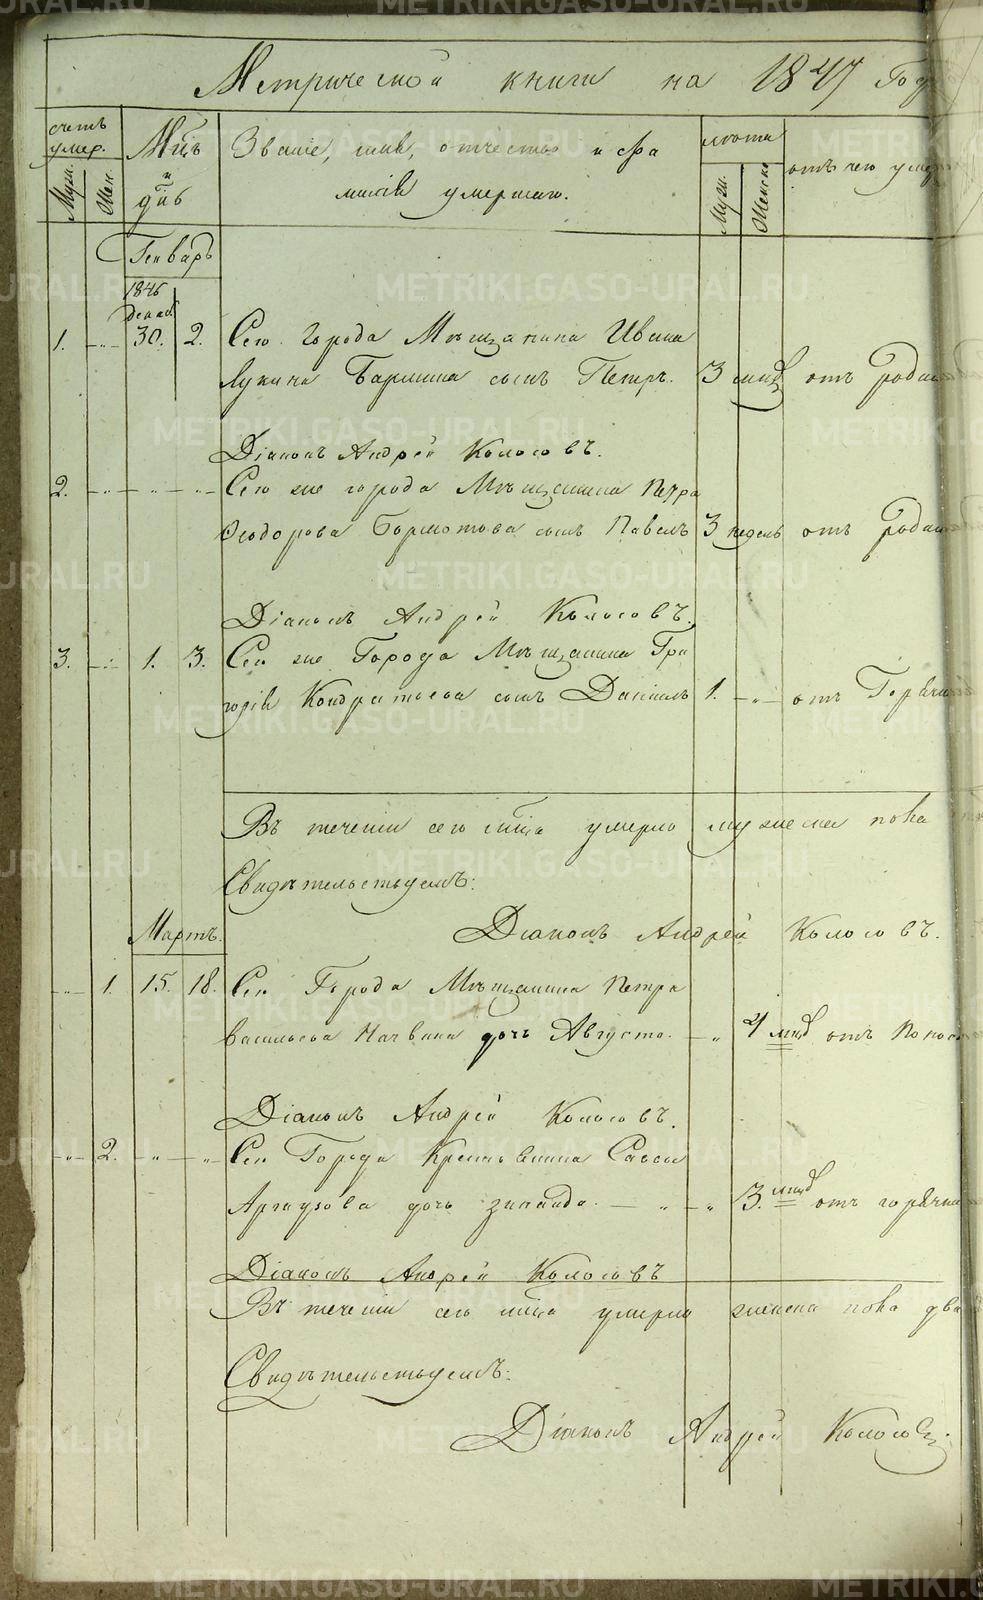 Метрической книги на 1847 Год
счетъ умер.
Муж.
Жен.
Мцъ и днь
Званіе, имя, отчество и фа
милія умершаго.
лѣта
Муж.
Женск
отъ чего умер
Генварь
1846
декаб
1. 30. 2. Сего города Мѣщанина Ивана
Лукина сынъ Петръ. 3 мцд отъ Родим
Діаконъ Андрей Колосовъ.
2. Сего же города Мѣщанина Петра
Ѳеодорова Бармотова сынъ Павелъ 3 недель отъ Родим
Діаконъ Андрей Колосовъ.
3. 1. 3. Сего же Города Мѣщанина Гри
горія Кондратьева сынъ Даніилъ 1. отъ Горячки
Въ теченіи сего мца умерло мужеска пола
Свидѣтельствуемъ:
Діаконъ Андрей Колосовъ.
Мартъ.
1. 15. 18. Сего Города Мѣщанина Петра
Васильева дочь Августа. 4 мцд отъ Поноса
Діаконъ Андрей Колосовъ.
2. Сего Города Саввы
дочь Зинаида. 3. мцд отъ горячки
Діаконъ Андрей Колосовъ
Въ теченіи сего мца умерло женска пола два
Свидѣтельствуемъ:
Діаконъ Андрей Колосовъ.
METRIKI.GASO-URAL.RU